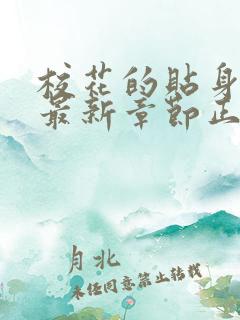 校花的贴身
最新章节正
月北
未经同意禁止转载